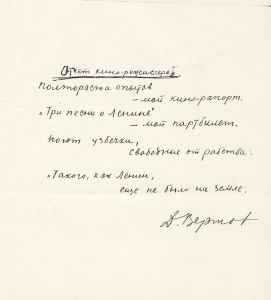 Ответ кино-режиссера.
Полтораста опытов
— мой кино-рапорт.
„Три песни о Ленине"
— мой партбилет.
Поют узбечки,
свободные от рабства:
„Такого, как Ленин,
еще не было на земле.
Д. Вертов